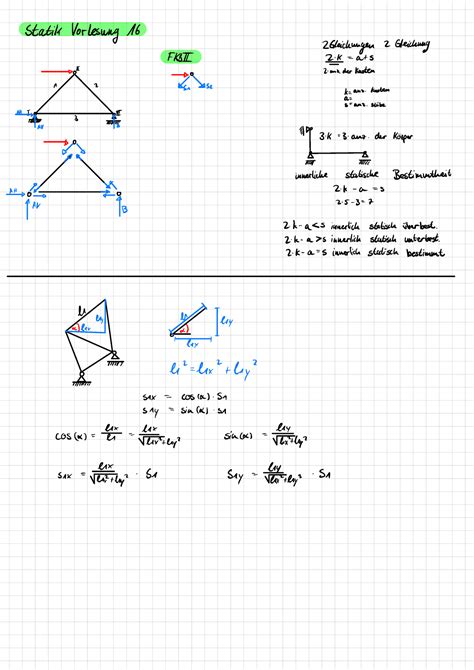 Statik Vorlesung 16
FKBIII
2 Gleichungen 2 Gleichung
2·k = a+s
2·anz. der Knoten
k = anz. Knoten
a =
s = anz. Stäbe
II
1
2
I
3
III
AH
AV
B
S1
S2
AH
AV
B
3·K = 3· anz. der Körper
innerliche statische Bestimmtheit
2·k - a = s
2·5-3=7
2·k - a < s innerlich statisch überbest.
2·k - a > s innerlich statisch unterbest.
2·k - a = s innerlich statisch bestimmt
l1
l1y
α
l1x
l1
l1y
α
l1x
l1² = l1x² + l1y²
S1x = cos(α)·S1
S1y = sin(α)·S1
cos(α) = l1x/l1 = l1x/√l1x²+l1y²
sin(α) = l1y/√l1x²+l1y²
S1x = l1x/√l1x²+l1y² · S1
S1y = l1y/√l1x²+l1y² · S1